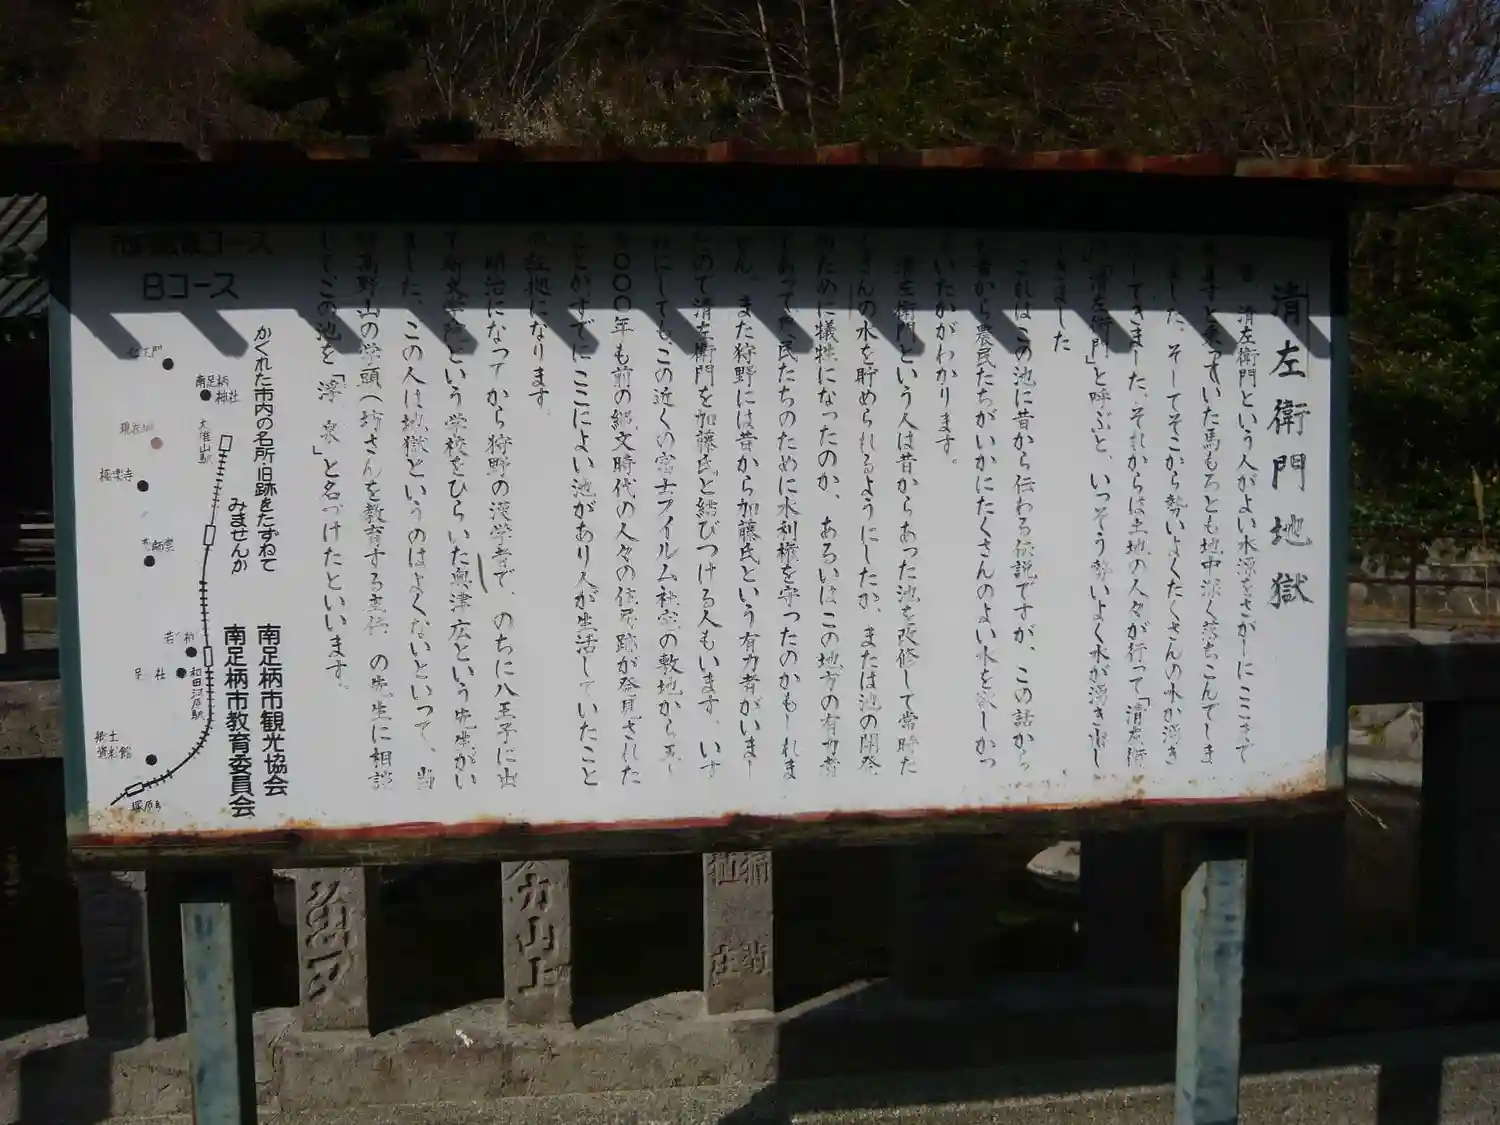 清左衛門地獄
昔 清左衛門という人がよい水源をさがしにここまで
きますと乗っていた馬もろとも地中深く落ちこんでしま
いました。そしてそこから勢いよくたくさんの水が湧き
出してきました。それからは土地の人々が行って「清左衛
門」「清左衛門」と呼ぶと、いっそう勢いよく水が湧き出し
てきました
これはこの池に昔から伝わる伝説ですが、この話から
も昔から農民たちがいかにたくさんのよい水を欲しがっ
ていたかがわかります。
清左衛門という人は昔からあった池を改修して常時た
くさんの水を貯められるようにしたか、または池の開発
のために犠牲になったのか、あるいはこの地方の有力者
であって農民たちのために水利権を守ったのかもしれま
せん。また狩野には昔から加藤氏という有力者がいまし
たので清左衛門を加藤氏と結びつける人もいます。いず
れにしてもこの近くの富士フイルム社宅の敷地から五、
000年も前の縄文時代の人々の住居跡が発見された
ことがすでにここによい池があり人が生活していたこと
の証拠になります。
明治になってから狩野の漢学者で、のちに八王子に出
て斯文学院という学校をひらいた奥津広という先生がい
ました、この人は地獄というのはよくないといって、当
時高野山の学頭(坊さんを教育する主任)の先生に相談
して、この池を「 泉」と名づけたといいます。
コース
Bコース
かくれた市内の名所・旧跡をたずねて
みませんか
南足柄市観光協会
南足柄市教育委員会
仁王門
南足柄
神社
大雄山駅
現在地
極楽寺
薬師堂
和田河原駅
郷土
資料館
塚原駅